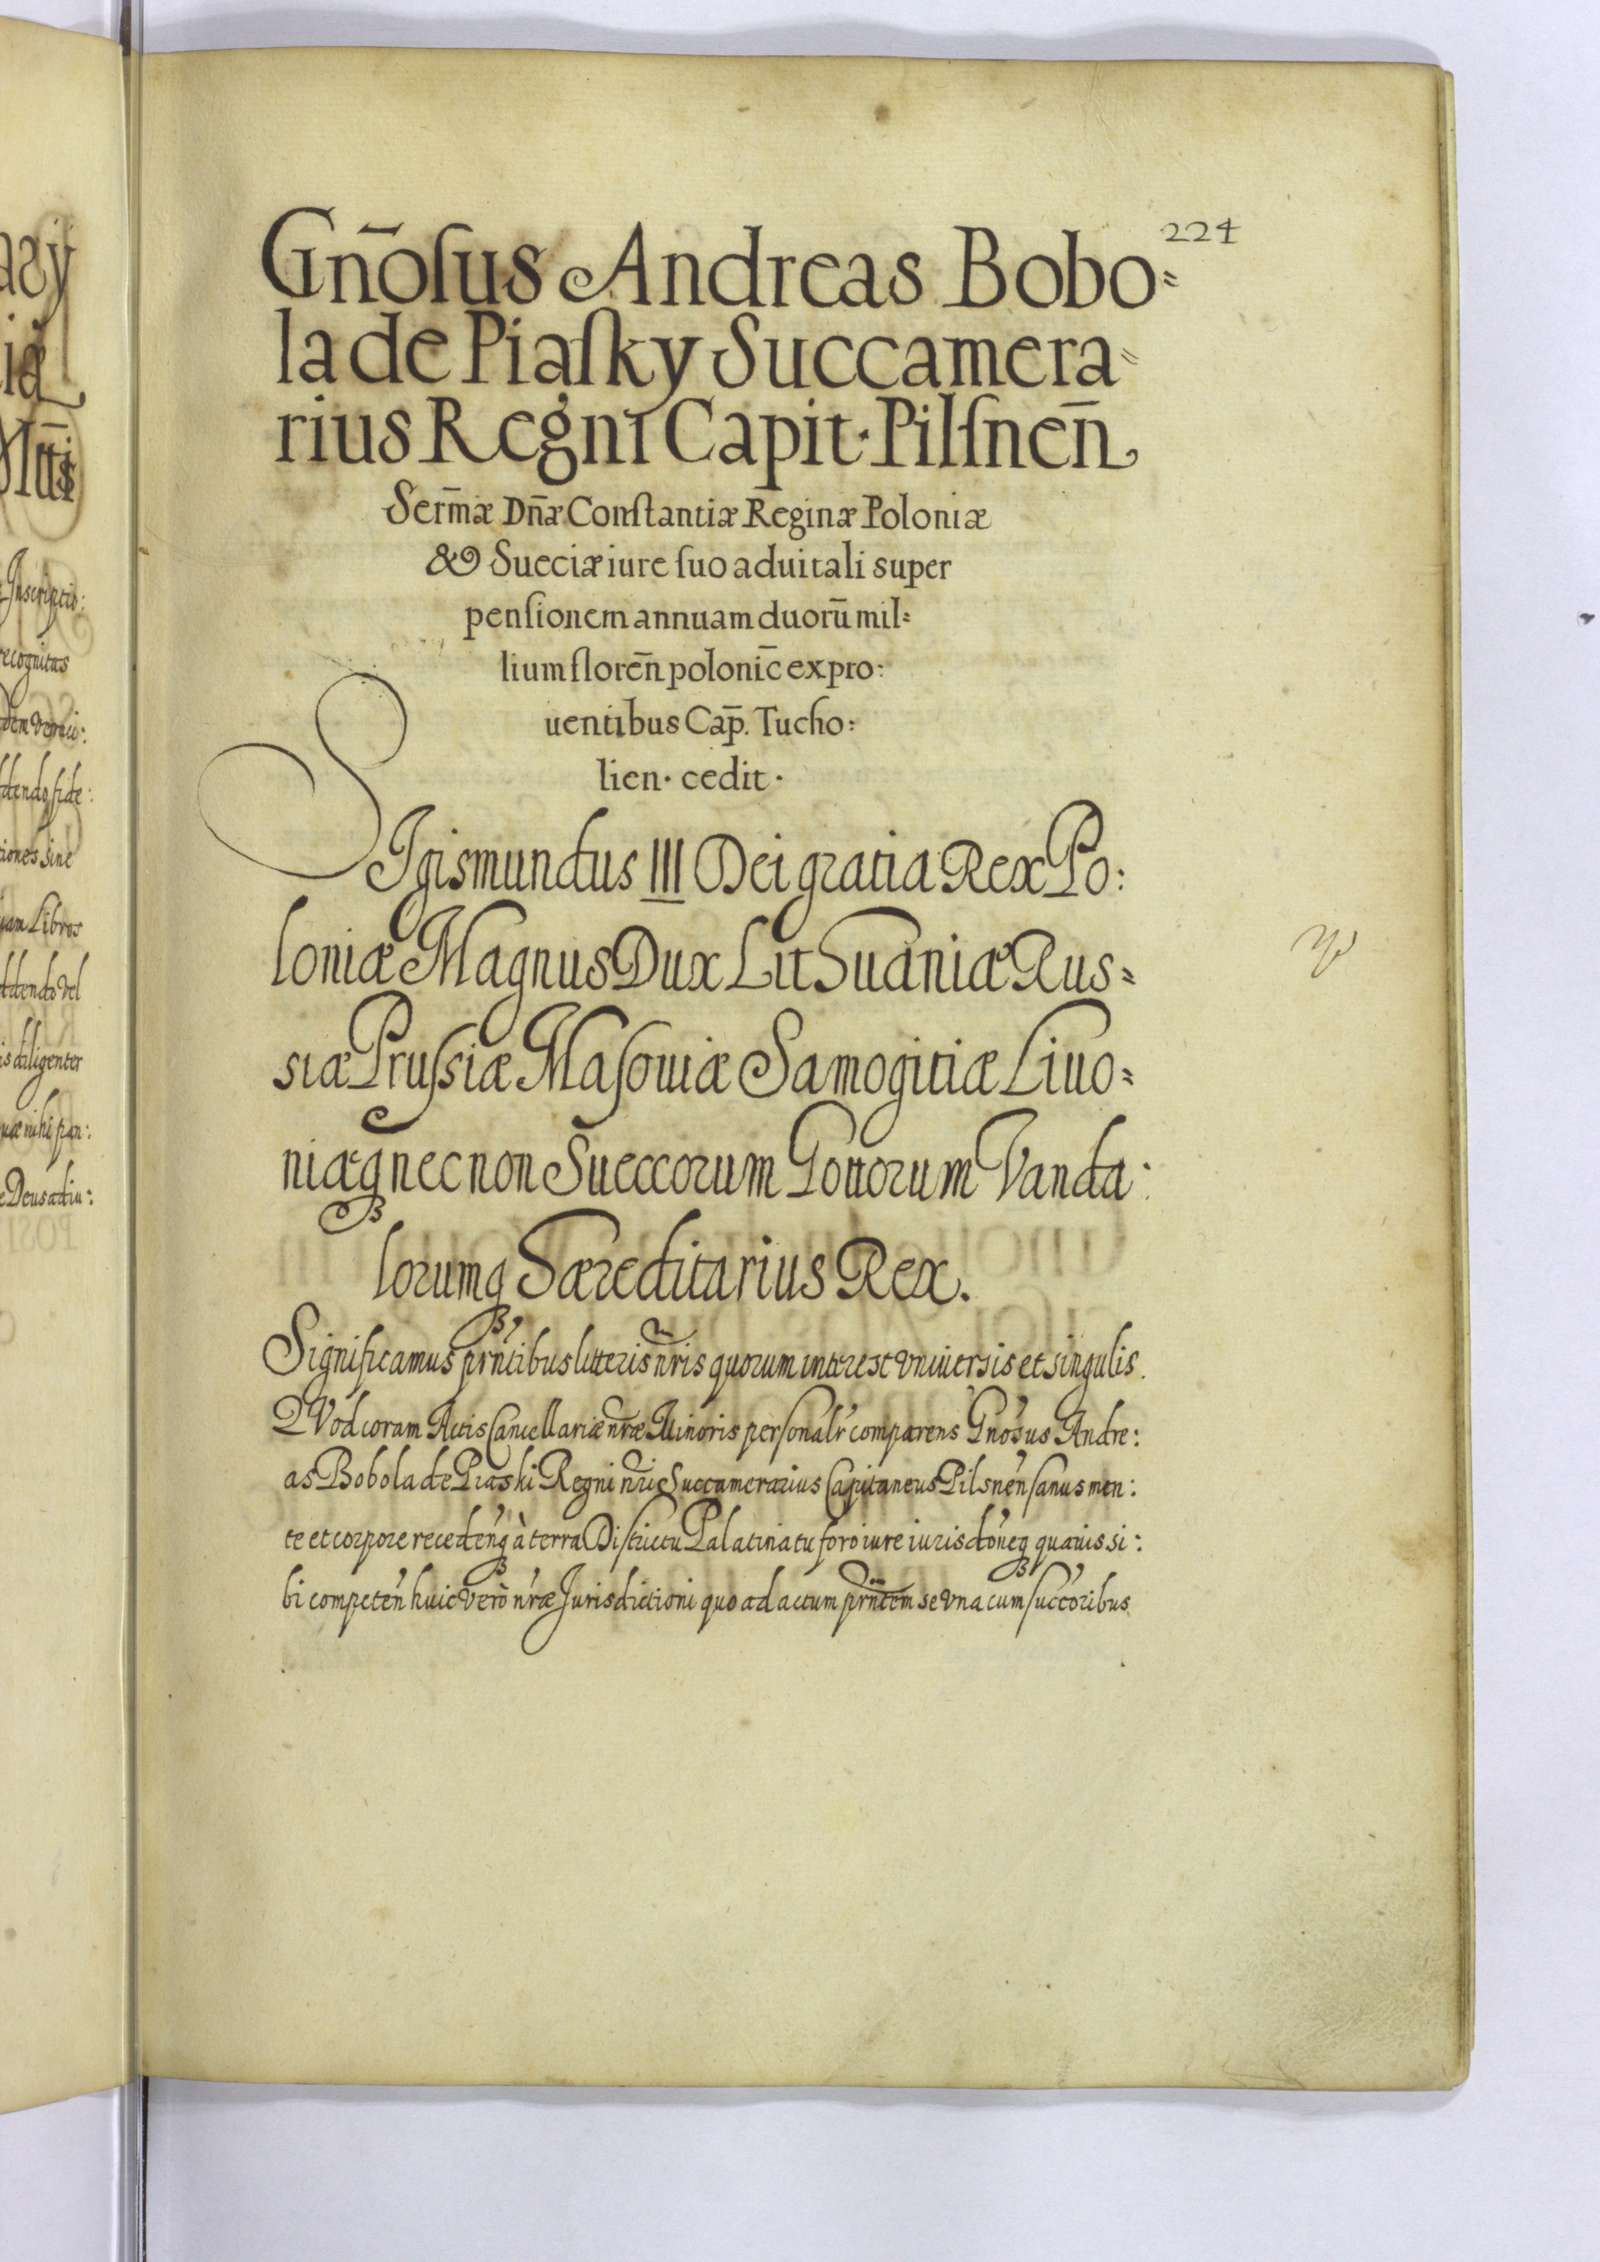 224
Gn̄osus Andreas Bobo=
la de Piasky Succamera=
rius Regni Capit. Pilsnen̄
Serm̄æ Dn̄æ Constantiæ Reginæ Poloniæ
& Sueciæ iure suo aduitali super
pensionem annuam duorū mil=
lium floren̄ polonic̄ ex pro:
uentibus Cap̄. Tucho:
lien. cedit.
SIgismundus III Dei gratia Rex Po:
loniæ Magnus Dux Lithuaniæ Rus=
siæ Prussiæ Masouiæ Samogitiæ Liuo=
niæq3 necnon Sueccorum Gottorum Vanda:
lorumq3 Hæreditarius Rex.
Significamus prn̄tibus litteris nr̄is quorum interest vniuersis et singulis.
QVod coram Actis Cancellariæ nr̄æ Minoris personalr̄ comparens Gnosus Andre:
as Bobola de Piaski Regni nr̄i Succamerarius Capitaneus Pilsnen̄ sanus men:
te et corpore receden̄q3 à terra Districtu Palatinatu foro iure iurisdon̄eq3 quauis si:
bi competen̄ huic verò nr̄æ Jurisdictioni quo ad actum prn̄tem se vna cum succoribus